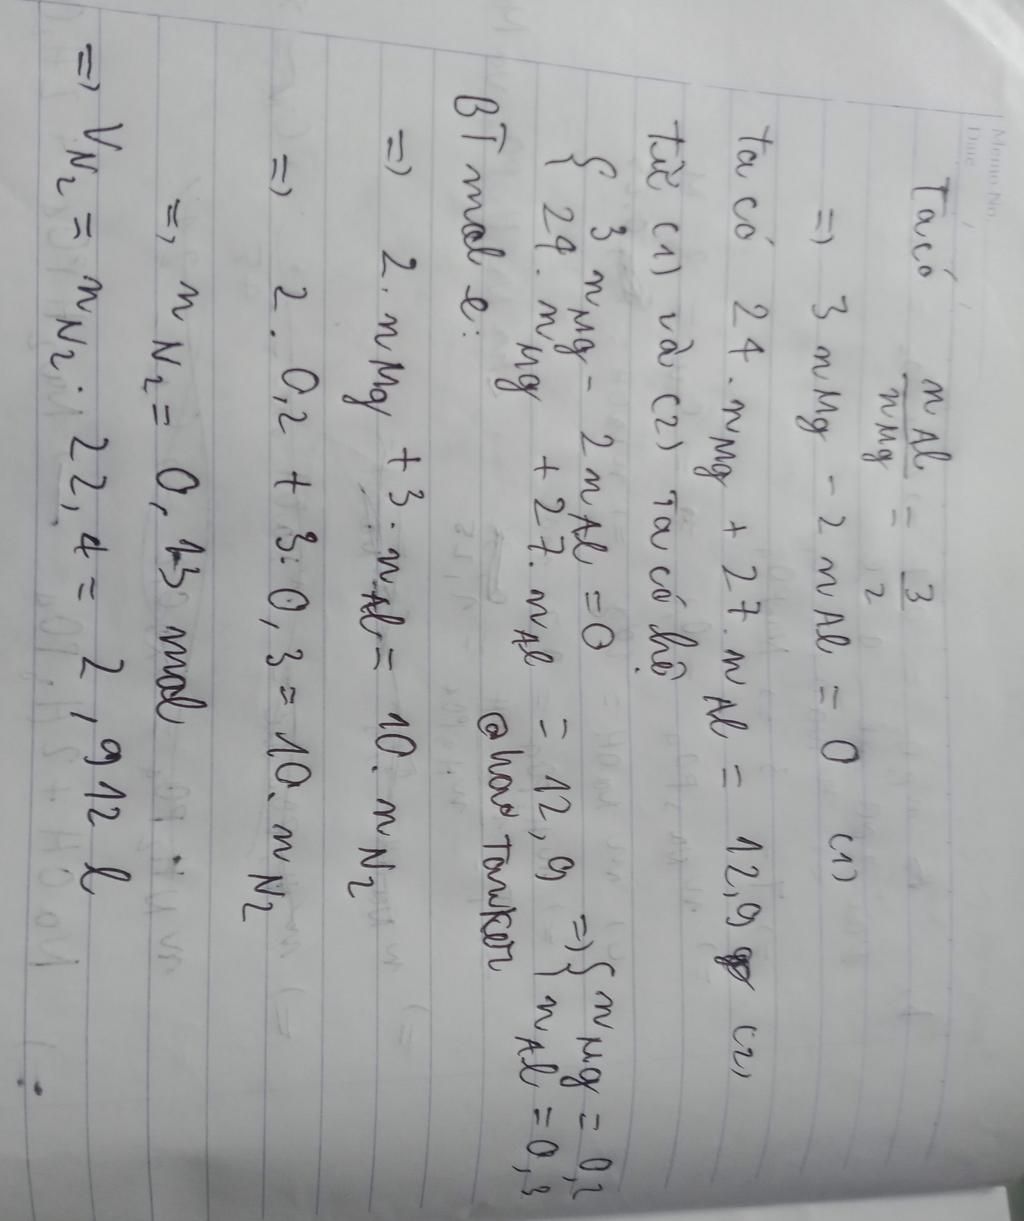 Memo No.
Date
Ta có nAl/nMg = 3/2
=> 3 nMg - 2 nAl = 0 (1)
Ta có 24. nMg + 27. nAl = 12,9 (2)
Từ (1) và (2) Ta có hệ
{ 3 nMg - 2 nAl = 0
{ 24. nMg + 27. nAl = 12,9 => { nMg = 0,2
{ nAl = 0,3
BT mol e:
@hao Tawker
=> 2. nMg + 3. nAl = 10. nN2
=> 2. 0,2 + 3. 0,3 = 10. nN2
=> nN2 = 0,13 mol
=> VN2 = nN2. 22,4 = 2,912 l